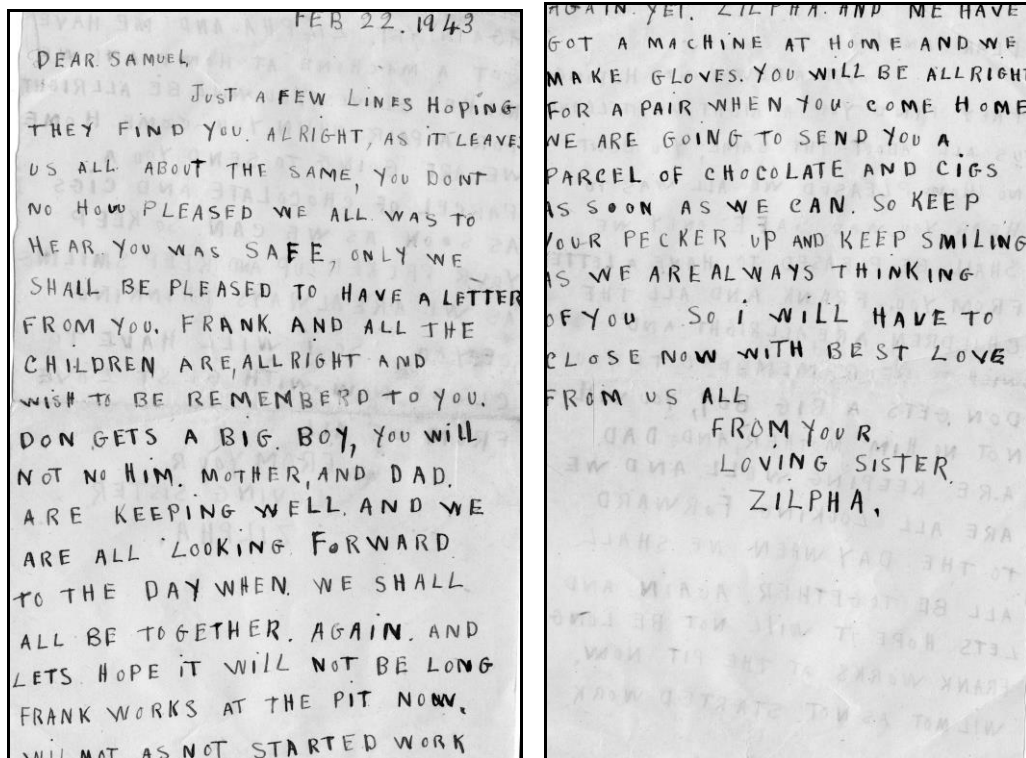 FEB 22. 1943
DEAR SAMUEL
JUST A FEW LINES HOPING
THEY FIND YOU. ALRIGHT, AS IT LEAVES
US ALL ABOUT THE SAME, YOU DONT
NO HOW PLEASED WE ALL WAS TO
HEAR YOU WAS SAFE, ONLY WE
SHALL BE PLEASED TO HAVE A LETTER
FROM YOU. FRANK. AND ALL THE
CHILDREN ARE, ALLRIGHT AND
WISH TO BE REMEMBERD TO YOU.
DON GETS A BIG. BOY, YOU WILL
NOT NO HIM. MOTHER, AND DAD.
ARE KEEPING WELL. AND WE
ARE ALL LOOKING FORWARD
TO THE DAY WHEN. WE SHALL
ALL BE TOGETHER. AGAIN. AND
LETS HOPE IT WILL NOT BE LONG
FRANK WORKS AT THE PIT NOW.
WILMOT AS NOT STARTED WORK
AGAIN. YET. ZILPHA. AND ME HAVE
GOT A MACHINE AT HOME AND WE
MAKE GLOVES. YOU WILL BE ALLRIGHT
FOR A PAIR WHEN YOU COME HOME
WE ARE GOING TO SEND YOU A
PARCEL OF CHOCOLATE AND CIGS
AS SOON AS WE CAN. SO KEEP
YOUR PECKER UP AND KEEP SMILING
AS WE ARE ALWAYS THINKING
OF YOU SO I WILL HAVE TO
CLOSE NOW WITH BEST LOVE
FROM US ALL
FROM YOUR
LOVING SISTER.
ZILPHA,